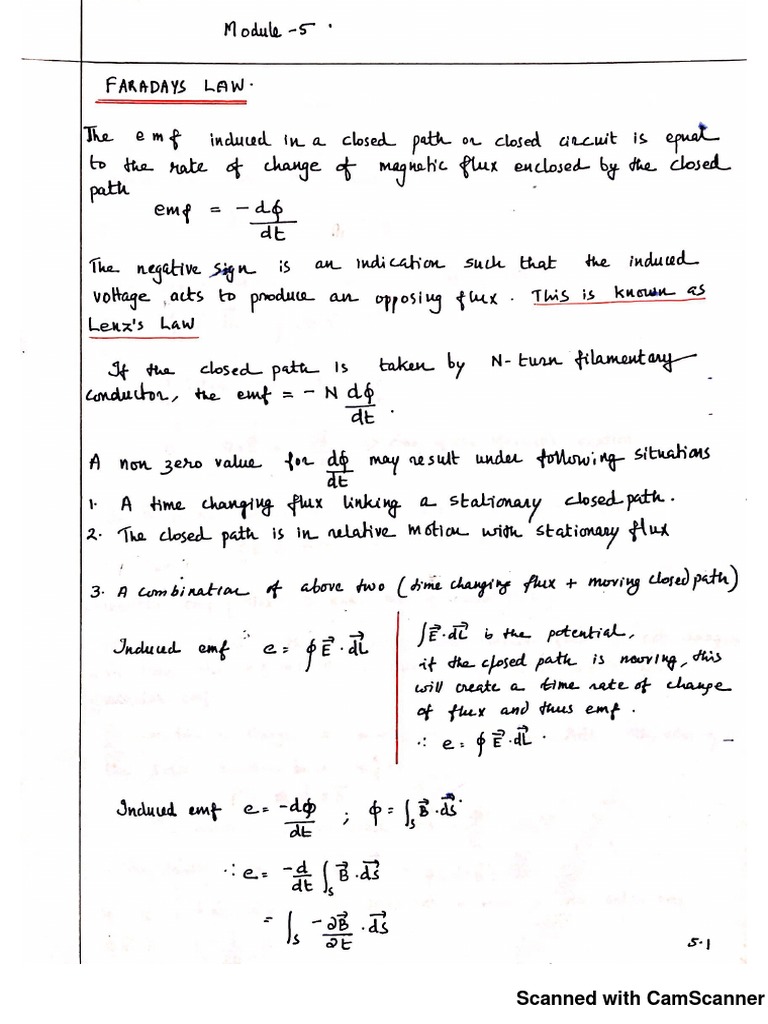 Module -5.
FARADAYS LAW.
The emf induced in a closed path or closed circuit is equal
to the rate of change of magnetic flux enclosed by the closed
path
emf = -dϕ/dt
The negative sign is an indication such that the induced
voltage, acts to produce an opposing flux. This is known as
Lenz's Law
If the closed path is taken by N-turn filamentary
conductor, the emf = - N dϕ/dt.
A non zero value for dϕ/dt may result under following situations
1. A time changing flux linking a stationary closed path.
2. The closed path is in relative motion with stationary flux
3. A combination of above two (time changing flux + moving closed path)
Induced emf e = ∮E⃗·dL⃗
∫E⃗·dL⃗ is the potential,
if the closed path is moving, this
will create a time rate of change
of flux and thus emf.
∴ e = ∮E⃗·dL⃗.
Induced emf e = -dϕ/dt ; ϕ = ∫ₛ B⃗·ds⃗
∴ e = -d/dt ∫ₛ B⃗·ds⃗
= ∫ₛ -∂B⃗/∂t · ds⃗
5.1
Scanned with CamScanner